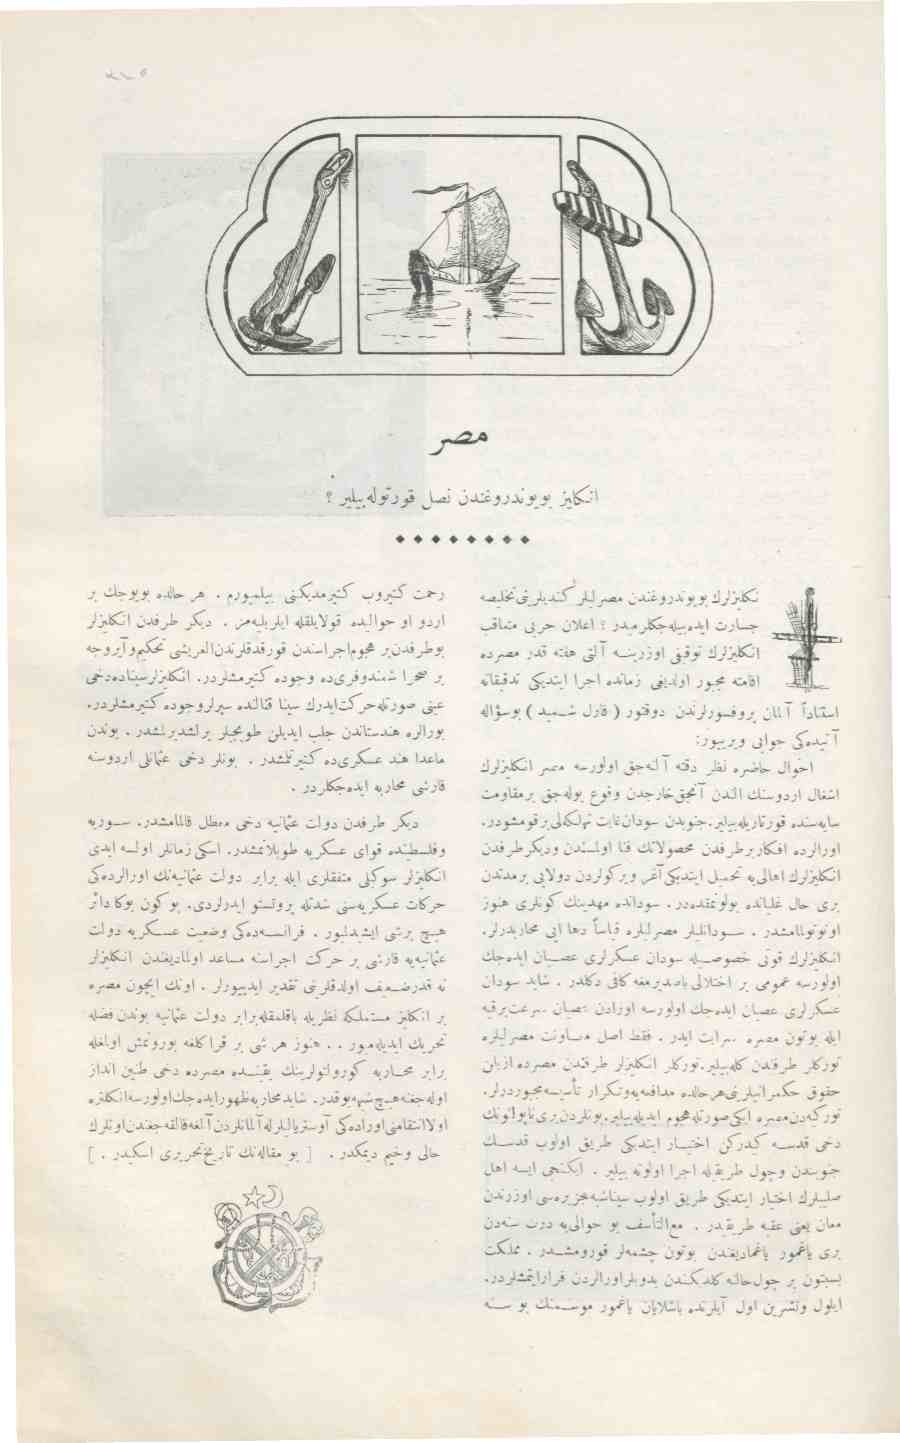 ٣١٥
مصر
انكليز بويوندروغندن نصل قورتوله‌بيلير ؟
نكليزلرك بويوندروغندن مصرليلر كنديلرينى تخليصه
جسارت ايده‌بيله‌جكلرميدر ؟ اعلان حربى متعاقب
انكليزلرك توقيفى اوزرينه آلتى هفته قدر مصرده
اقامته مجبور اولديغى زمانده اجرا ايتديكى تدقيقاته
استناداً آلمان پروفسورلرندن دوقتور ( قارل شميد ) بوسؤاله
آتيده‌كى جوابى ويرييور:
احوال حاضره نظر دقته آلنه‌جق اولورسه مصر انكليزلرك
اشغال اردوسنك الندن آنجق خارجدن وقوع بوله‌جق برمقاومت
سايه‌سنده قورتاريله‌بيلير. جنوبدن سودان غايت تهلكه‌لى بر قومشودر.
اورالرده افكار برطرفدن محصولاتك فنا اولسندن وديكر طرفدن
انكليزلرك اهالى‌يه تحميل ايتديكى آغر ويركولردن دولايى برمدتدن
برى حال غليانده بولونمقده‌در. سودانده مهدينك كونلرى هنوز
اونوتولمامشدر . سودانليلر مصرليلره قياساً دها ايى محاربدرلر.
انكليزلرك قوتى خصوصيله سودان عسكرلرى عصيان ايده‌جك
اولورسه عمومى بر اختلالى باصديرمغه كافى دكلدر . شايد سودان
عسكرلرى عصيان ايده‌جك اولورسه اورادن عصيان سرعت برقيه
ايله بوتون مصره سرايت ايدر . فقط اصل معاونت مصرليلره
توركلر طرفندن كله‌بيلير. توركلر انكليزلر طرفندن مصرده ازيلن
حقوق حكمرانيلرينى هر حالده مدافعه‌يه وتكرار تأسيسه مجبوردرلر.
توركيه‌دن مصره ايكى صورتله هجوم ايديله‌بيلير. بونلردن برى ناپوله‌ئونك
دخى قدسه كيدركن اختيار ايتديكى طريق اولوب قدسك
جنوبندن وچول طريقيله اجرا اولونه بيلير . ايكنجى ايسه اهل
صليبلرك اختيار ايتديكى طريق اولوب سينا شبه‌جزيره‌سى اوزرندن
معان يعنى عقبه طريقيدر . مع‌التأسف بو حوالى‌يه درت سنه‌دن
برى ياغمور ياغماديغندن بوتون چشمه‌لر قورومشدر . مملكت
بسبتون بر چول حالنه كلديكندن بدويلر اورالردن فرار ايتمشلردر.
ايلول وتشرين اول آيلرنده باشلايان ياغمور موسمنك بو سنه
رحمت كتيروب كتيرمديكنى بيلميورم . هر حالده بويوجك بر
اردو او حواليده قولايلقله ايلريليه‌مز . ديكر طرفدن انكليزلر
بوطرفدن بر هجوم اجراسندن قورقدقلرندن العريشى تحكيم وآيروجه
بر صحرا شمندوفرى‌ده وجوده كتيرمشلردر. انكليزلر سيناده دخى
عينى صورتله حركت ايدرك سينا قنالنده سپرلر وجوده كتيرمشلردر.
بورالره هندستاندن جلب ايديلن طوپجيلر يرلشديرلمشدر . بوندن
ماعدا هند عسكرى‌ده كتيرتلمشدر . بونلر دخى عثمانلى اردوسنه
قارشى محاربه ايده‌جكلردر .
ديكر طرفدن دولت عثمانيه دخى معطل قالمامشدر. سوريه
وفلسطينده قواى عسكريه طوپلانمشدر. اسكى زمانلر اولسه ايدى
انكليزلر سوكيلى متفقلرى ايله برابر دولت عثمانيه‌نك اورالرده‌كى
حركات عسكريه‌سنى شدتله پروتستو ايدرلردى. بو كون بوكا دائر
هيچ برشى ايشيدلميور . فرانسه‌ده‌كى وضعيت عسكريه دولت
عثمانيه‌يه قارشى بر حركت اجراسنه مساعد اولماديغندن انكليزلر
نه قدر ضعيف اولدقلرينى تقدير ايدييورلر . اونك ايچون مصره
بر انكليز مستملكه نظريله باقلمقله برابر دولت عثمانيه بوندن فضله
تحريك ايديله‌ميور . . هنوز هر شى بر قراكلغه بورونمش اولمغله
برابر محاربه كورولتولرينك يقينده مصرده دخى طنين انداز
اوله‌جغنه هيچ شبهه يوقدر. شايد محاربه ظهور ايده‌جك اولورسه انكلتره
اولا انتقامنى اوراده‌كى آوسترياليلر له آلمانلردن آلمغه قالقه‌جغندن اونلرك
حالى وخيم ديمكدر . [ بو مقاله‌نك تاريخ تحريرى اسكيدر . ]